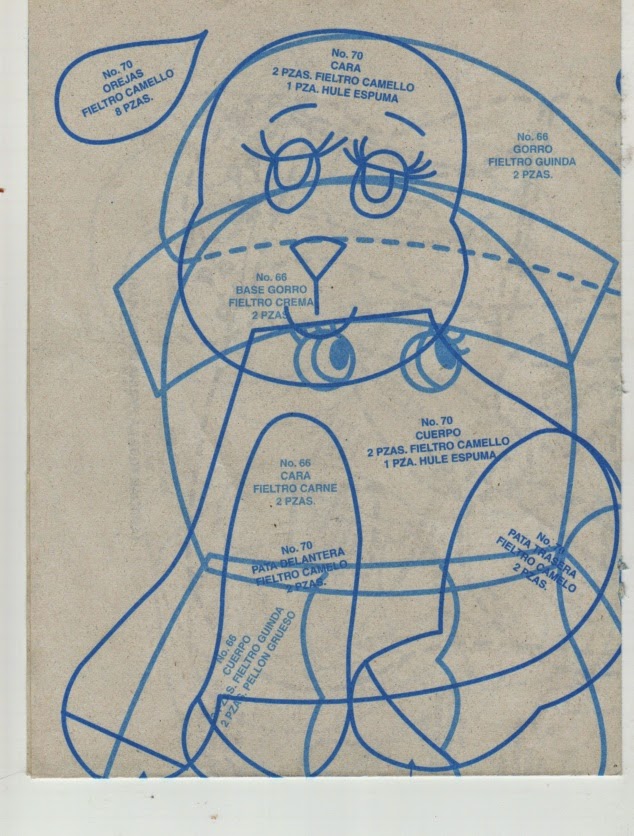 No. 70
OREJAS
FIELTRO CAMELLO
8 PZAS.
No. 70
CARA
2 PZAS. FIELTRO CAMELLO
1 PZA. HULE ESPUMA
No. 66
GORRO
FIELTRO GUINDA
2 PZAS.
No. 66
BASE GORRO
FIELTRO CREMA
2 PZAS.
No. 70
CUERPO
2 PZAS. FIELTRO CAMELLO
1 PZA. HULE ESPUMA
No. 66
CARA
FIELTRO CARNE
2 PZAS.
No. 70
PATA DELANTERA
FIELTRO CAMELO
2 PZAS.
No. 70
PATA TRASERA
FIELTRO CAMELO
2 PZAS.
No. 66
CUERPO
PZAS. FIELTRO GUINDA
2 PZAS. PELLON GRUESO